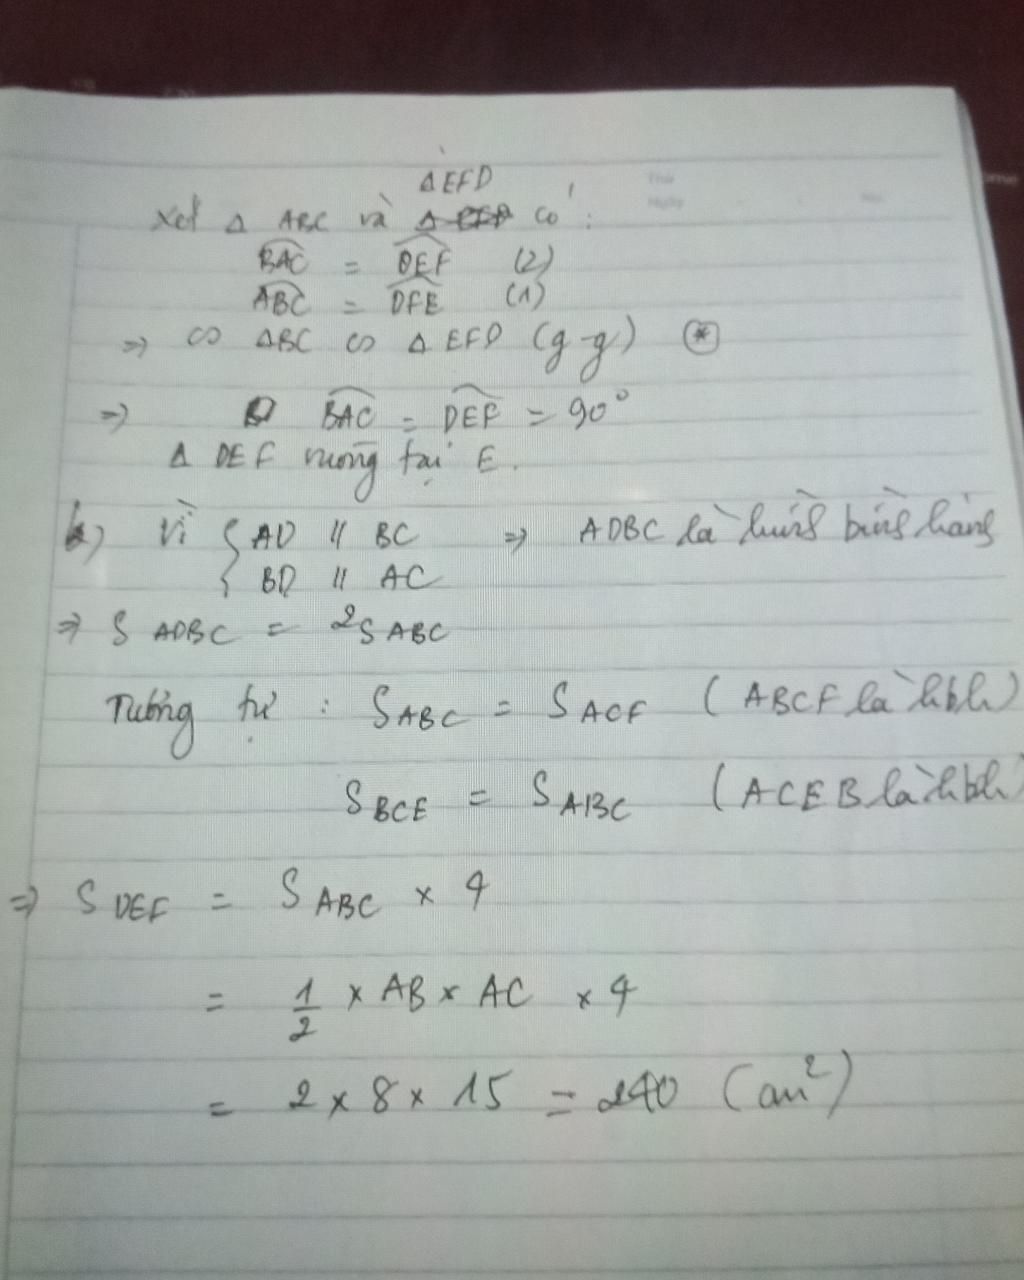 Δ EFD
Xét Δ ABC và có :
BAC = DEF (2)
ABC = DFE (1)
=> ∽ ΔBC ∽ Δ EFD (g-g) (*)
=> BAC = DEF = 90°
Δ DEF vuông tại E.
b) Vì { AD // BC => ADBC là hình bình hàng
BD // AC
=> S ADBC = 2S ABC
Tương tự : S ABC = S ACF ( ABCF là hbh)
S BCE = S ABC ( ACEB là hbh)
=> S DEF = S ABC x 4
= 1/2 x AB x AC x 4
= 2 x 8 x 15 = 240 (cm²)